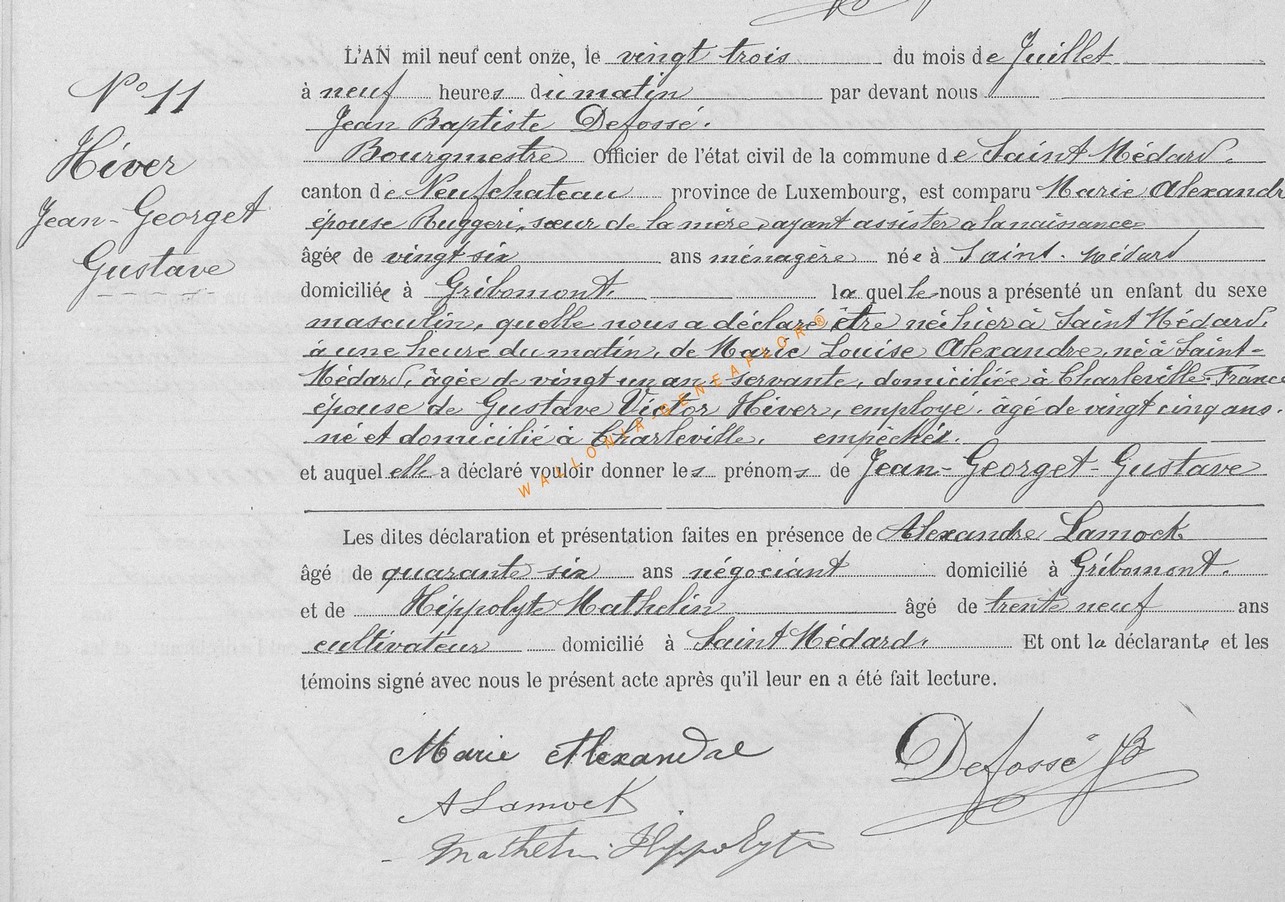 N° 11
Hiver
Jean-Georget
Gustave
L'AN mil neuf cent onze, le vingt trois du mois de Juillet
à neuf heures du matin par devant nous
Jean Baptiste Defossé.
Bourgmestre Officier de l'état civil de la commune de Saint Médard.
canton de Neufchateau province de Luxembourg, est comparu Marie Alexandr
épouse Ruggeri, sœur de la mère ayant assister a la naissance
âgée de vingt six ans ménagère née à Saint-Médard
domiciliée à Gribomont. laquelle nous a présenté un enfant du sexe
masculin, quelle nous a déclaré être né hier à Saint Médard.
à une heure du matin, de Marie Louise Alexandre, né à Saint-
Médard, âgée de vingt un an servante, domiciliée à Charleville-Franc
épouse de Gustave Victor Hiver, employé. âgé de vingt cinq ans.
né et domicilié à Charleville. empêché.
et auquel elle a déclaré vouloir donner les prénoms de Jean-Georget-Gustave
Les dites déclaration et présentation faites en présence de Alexandre Lamock
âgé de quarante six ans négociant domicilié à Gribomont.
et de Hippolyte Mathelin âgé de trente neuf ans
cultivateur domicilié à Saint Médard. Et ont la déclarante et les
témoins signé avec nous le présent acte après qu'il leur en a été fait lecture.
Marie Alexandre
Defossé JB
A Lamock
Mathelin Hippolyte
WALLONIA-GENEAFLOR®